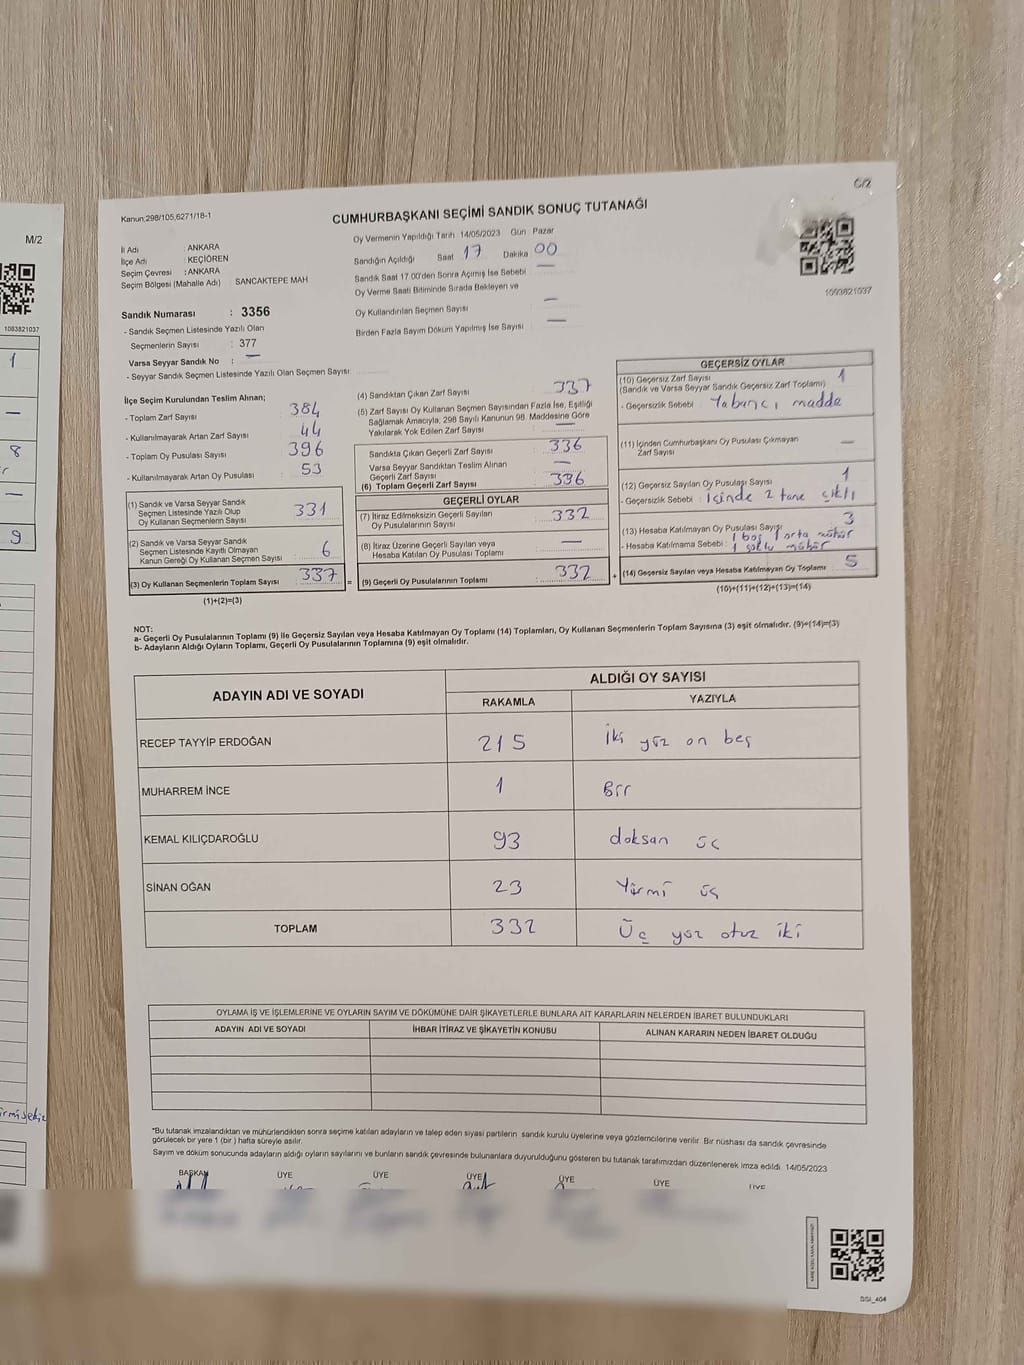 C/2
Kanun:298/105,6271/18-1
CUMHURBAŞKANI SEÇİMİ SANDIK SONUÇ TUTANAĞI
İl Adı : ANKARA
İlçe Adı : KEÇİÖREN
Seçim Çevresi : ANKARA
Seçim Bölgesi (Mahalle Adı) : SANCAKTEPE MAH
Sandık Numarası : 3356
- Sandık Seçmen Listesinde Yazılı Olan
Seçmenlerin Sayısı : 377
Varsa Seyyar Sandık No : —
- Seyyar Sandık Seçmen Listesinde Yazılı Olan Seçmen Sayısı:
Oy Vermenin Yapıldığı Tarih 14/05/2023 Gün Pazar
Sandığın Açıldığı Saat 17 Dakika 00
Sandık Saat 17.00'den Sonra Açılmış İse Sebebi —
Oy Verme Saati Bitiminde Sırada Bekleyen ve
Oy Kullandırılan Seçmen Sayısı —
Birden Fazla Sayım Döküm Yapılmış İse Sayısı —
1093821037
İlçe Seçim Kurulundan Teslim Alınan;
- Toplam Zarf Sayısı 384
- Kullanılmayarak Artan Zarf Sayısı 44
- Toplam Oy Pusulası Sayısı 396
- Kullanılmayarak Artan Oy Pusulası 53
(1) Sandık ve Varsa Seyyar Sandık
Seçmen Listesinde Yazılı Olup
Oy Kullanan Seçmenlerin Sayısı 331
(2) Sandık ve Varsa Seyyar Sandık
Seçmen Listesinde Kayıtlı Olmayan
Kanun Gereği Oy Kullanan Seçmen Sayısı 6
(3) Oy Kullanan Seçmenlerin Toplam Sayısı 337 =
(1)+(2)=(3)
(4) Sandıktan Çıkan Zarf Sayısı 337
(5) Zarf Sayısı Oy Kullanan Seçmen Sayısından Fazla İse, Eşitliği
Sağlamak Amacıyla, 298 Sayılı Kanunun 98. Maddesine Göre
Yakılarak Yok Edilen Zarf Sayısı —
Sandıkta Çıkan Geçerli Zarf Sayısı 336
Varsa Seyyar Sandıktan Teslim Alınan
Geçerli Zarf Sayısı —
(6) Toplam Geçerli Zarf Sayısı 336
GEÇERLİ OYLAR
(7) İtiraz Edilmeksizin Geçerli Sayılan
Oy Pusulalarının Sayısı 332
(8) İtiraz Üzerine Geçerli Sayılan veya
Hesaba Katılan Oy Pusulası Toplamı —
(9) Geçerli Oy Pusulalarının Toplamı : 332 +
GEÇERSİZ OYLAR
(10) Geçersiz Zarf Sayısı
(Sandık ve Varsa Seyyar Sandık Geçersiz Zarf Toplamı) 1
- Geçersizlik Sebebi : Yabancı madde
(11) İçinden Cumhurbaşkanı Oy Pusulası Çıkmayan
Zarf Sayısı —
(12) Geçersiz Sayılan Oy Pusulası Sayısı 1
- Geçersizlik Sebebi : İçinde 2 tane çıktı
(13) Hesaba Katılmayan Oy Pusulası Sayısı 3
- Hesaba Katılmama Sebebi : 1 boş 1 orta mühür
1 çoklu mühür
(14) Geçersiz Sayılan veya Hesaba Katılmayan Oy Toplamı 5
(10)+(11)+(12)+(13)=(14)
NOT:
a- Geçerli Oy Pusulalarının Toplamı (9) ile Geçersiz Sayılan veya Hesaba Katılmayan Oy Toplamı (14) Toplamları, Oy Kullanan Seçmenlerin Toplam Sayısına (3) eşit olmalıdır. (9)+(14)=(3)
b- Adayların Aldığı Oyların Toplamı, Geçerli Oy Pusulalarının Toplamına (9) eşit olmalıdır.
ADAYIN ADI VE SOYADI
ALDIĞI OY SAYISI
RAKAMLA YAZIYLA
RECEP TAYYİP ERDOĞAN 215 İki yüz on beş
MUHARREM İNCE 1 Bir
KEMAL KILIÇDAROĞLU 93 doksan üç
SİNAN OĞAN 23 Yirmi üç
TOPLAM 332 Üç yüz otuz iki
OYLAMA İŞ VE İŞLEMLERİNE VE OYLARIN SAYIM VE DÖKÜMÜNE DAİR ŞİKAYETLERLE BUNLARA AİT KARARLARIN NELERDEN İBARET BULUNDUKLARI
ADAYIN ADI VE SOYADI İHBAR İTİRAZ VE ŞİKAYETİN KONUSU ALINAN KARARIN NEDEN İBARET OLDUĞU
*Bu tutanak imzalandıktan ve mühürlendikten sonra seçime katılan adayların ve talep eden siyasi partilerin sandık kurulu üyelerine veya gözlemcilerine verilir. Bir nüshası da sandık çevresinde
görülecek bir yere 1 (bir) hafta süreyle asılır.
Sayım ve döküm sonucunda adayların aldığı oyların sayılarını ve bunların sandık çevresinde bulunanlara duyurulduğunu gösteren bu tutanak tarafımızdan düzenlenerek imza edildi. 14/05/2023
BAŞKAN ÜYE ÜYE ÜYE ÜYE ÜYE ÜYE
SSI_404
M/2
1083821037
1
—
8
—
9